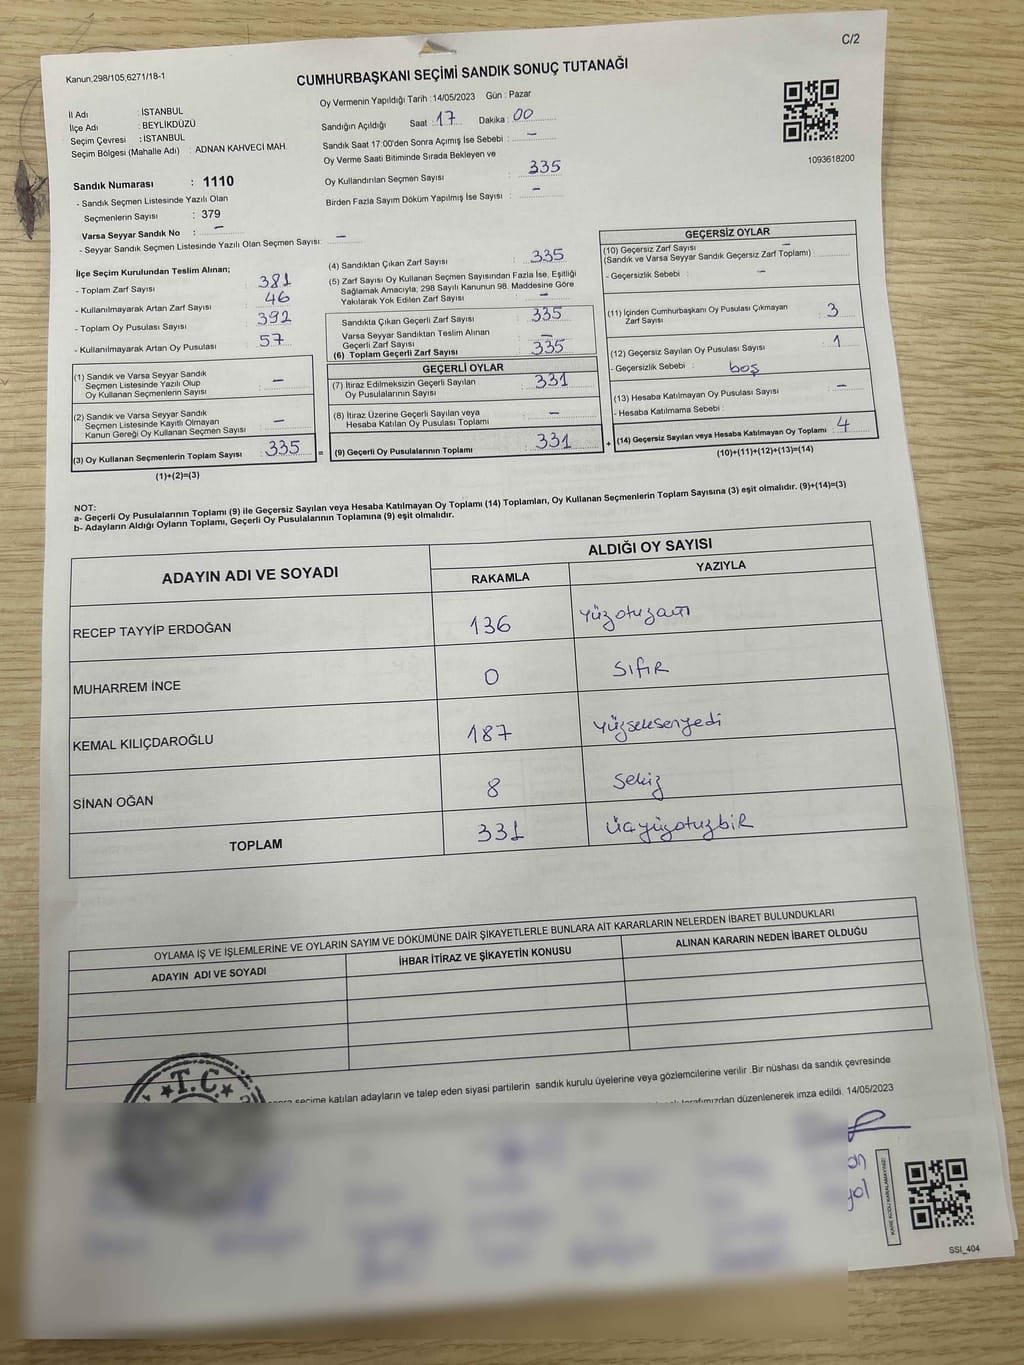 C/2
Kanun,298/105,6271/18-1
CUMHURBAŞKANI SEÇİMİ SANDIK SONUÇ TUTANAĞI
İl Adı : İSTANBUL
İlçe Adı : BEYLİKDÜZÜ
Seçim Çevresi : İSTANBUL
Seçim Bölgesi (Mahalle Adı) : ADNAN KAHVECİ MAH.
Oy Vermenin Yapıldığı Tarih : 14/05/2023 Gün : Pazar
Sandığın Açıldığı Saat : 17 Dakika : 00
Sandık Saat 17:00'den Sonra Açımış İse Sebebi : –
Oy Verme Saati Bitiminde Sırada Bekleyen ve
Oy Kullandırılan Seçmen Sayısı : 335
Birden Fazla Sayım Döküm Yapılmış İse Sayısı : –
1093618200
Sandık Numarası : 1110
- Sandık Seçmen Listesinde Yazılı Olan
Seçmenlerin Sayısı : 379
Varsa Seyyar Sandık No : –
- Seyyar Sandık Seçmen Listesinde Yazılı Olan Seçmen Sayısı: –
İlçe Seçim Kurulundan Teslim Alınan;
- Toplam Zarf Sayısı : 381
- Kullanılmayarak Artan Zarf Sayısı : 46
- Toplam Oy Pusulası Sayısı : 392
- Kullanılmayarak Artan Oy Pusulası : 57
(1) Sandık ve Varsa Seyyar Sandık
Seçmen Listesinde Yazılı Olup
Oy Kullanan Seçmenlerin Sayısı : –
(2) Sandık ve Varsa Seyyar Sandık
Seçmen Listesinde Kayıtlı Olmayan
Kanun Gereği Oy Kullanan Seçmen Sayısı : –
(3) Oy Kullanan Seçmenlerin Toplam Sayısı : 335
(1)+(2)=(3)
(4) Sandıktan Çıkan Zarf Sayısı : 335
(5) Zarf Sayısı Oy Kullanan Seçmen Sayısından Fazla İse, Eşitliği
Sağlamak Amacıyla; 298 Sayılı Kanunun 98. Maddesine Göre
Yakılarak Yok Edilen Zarf Sayısı : –
Sandıkta Çıkan Geçerli Zarf Sayısı : 335
Varsa Seyyar Sandıktan Teslim Alınan
Geçerli Zarf Sayısı : –
(6) Toplam Geçerli Zarf Sayısı : 335
GEÇERLİ OYLAR
(7) İtiraz Edilmeksizin Geçerli Sayılan
Oy Pusulasının Sayısı : 331
(8) İtiraz Üzerine Geçerli Sayılan veya
Hesaba Katılan Oy Pusulası Toplamı : –
= (9) Geçerli Oy Pusulalarının Toplamı : 331
GEÇERSİZ OYLAR
(10) Geçersiz Zarf Sayısı
(Sandık ve Varsa Seyyar Sandık Geçersiz Zarf Toplamı) : –
- Geçersizlik Sebebi : –
(11) İçinden Cumhurbaşkanı Oy Pusulası Çıkmayan
Zarf Sayısı : 3
(12) Geçersiz Sayılan Oy Pusulası Sayısı : 1
- Geçersizlik Sebebi : boş
(13) Hesaba Katılmayan Oy Pusulası Sayısı : –
- Hesaba Katılmama Sebebi :
+ (14) Geçersiz Sayılan veya Hesaba Katılmayan Oy Toplamı : 4
(10)+(11)+(12)+(13)=(14)
NOT:
a- Geçerli Oy Pusulalarının Toplamı (9) ile Geçersiz Sayılan veya Hesaba Katılmayan Oy Toplamı (14) Toplamları, Oy Kullanan Seçmenlerin Toplam Sayısına (3) eşit olmalıdır. (9)+(14)=(3)
b- Adayların Aldığı Oyların Toplamı, Geçerli Oy Pusulalarının Toplamına (9) eşit olmalıdır.
ADAYIN ADI VE SOYADI
ALDIĞI OY SAYISI
RAKAMLA YAZIYLA
RECEP TAYYİP ERDOĞAN 136 yüzotuzaltı
MUHARREM İNCE 0 sıfır
KEMAL KILIÇDAROĞLU 187 yüzseksenyedi
SİNAN OĞAN 8 sekiz
TOPLAM 331 üçyüzotuzbir
OYLAMA İŞ VE İŞLEMLERİNE VE OYLARIN SAYIM VE DÖKÜMÜNE DAİR ŞİKAYETLERLE BUNLARA AİT KARARLARIN NELERDEN İBARET BULUNDUKLARI
ADAYIN ADI VE SOYADI İHBAR İTİRAZ VE ŞİKAYETİN KONUSU ALINAN KARARIN NEDEN İBARET OLDUĞU
T.C.
seçime katılan adayların ve talep eden siyasi partilerin sandık kurulu üyelerine veya gözlemcilerine verilir .Bir nüshası da sandık çevresinde
tarafımızdan düzenlenerek imza edildi. 14/05/2023
KARE KODU KARALAMAYINIZ!
SSI_404